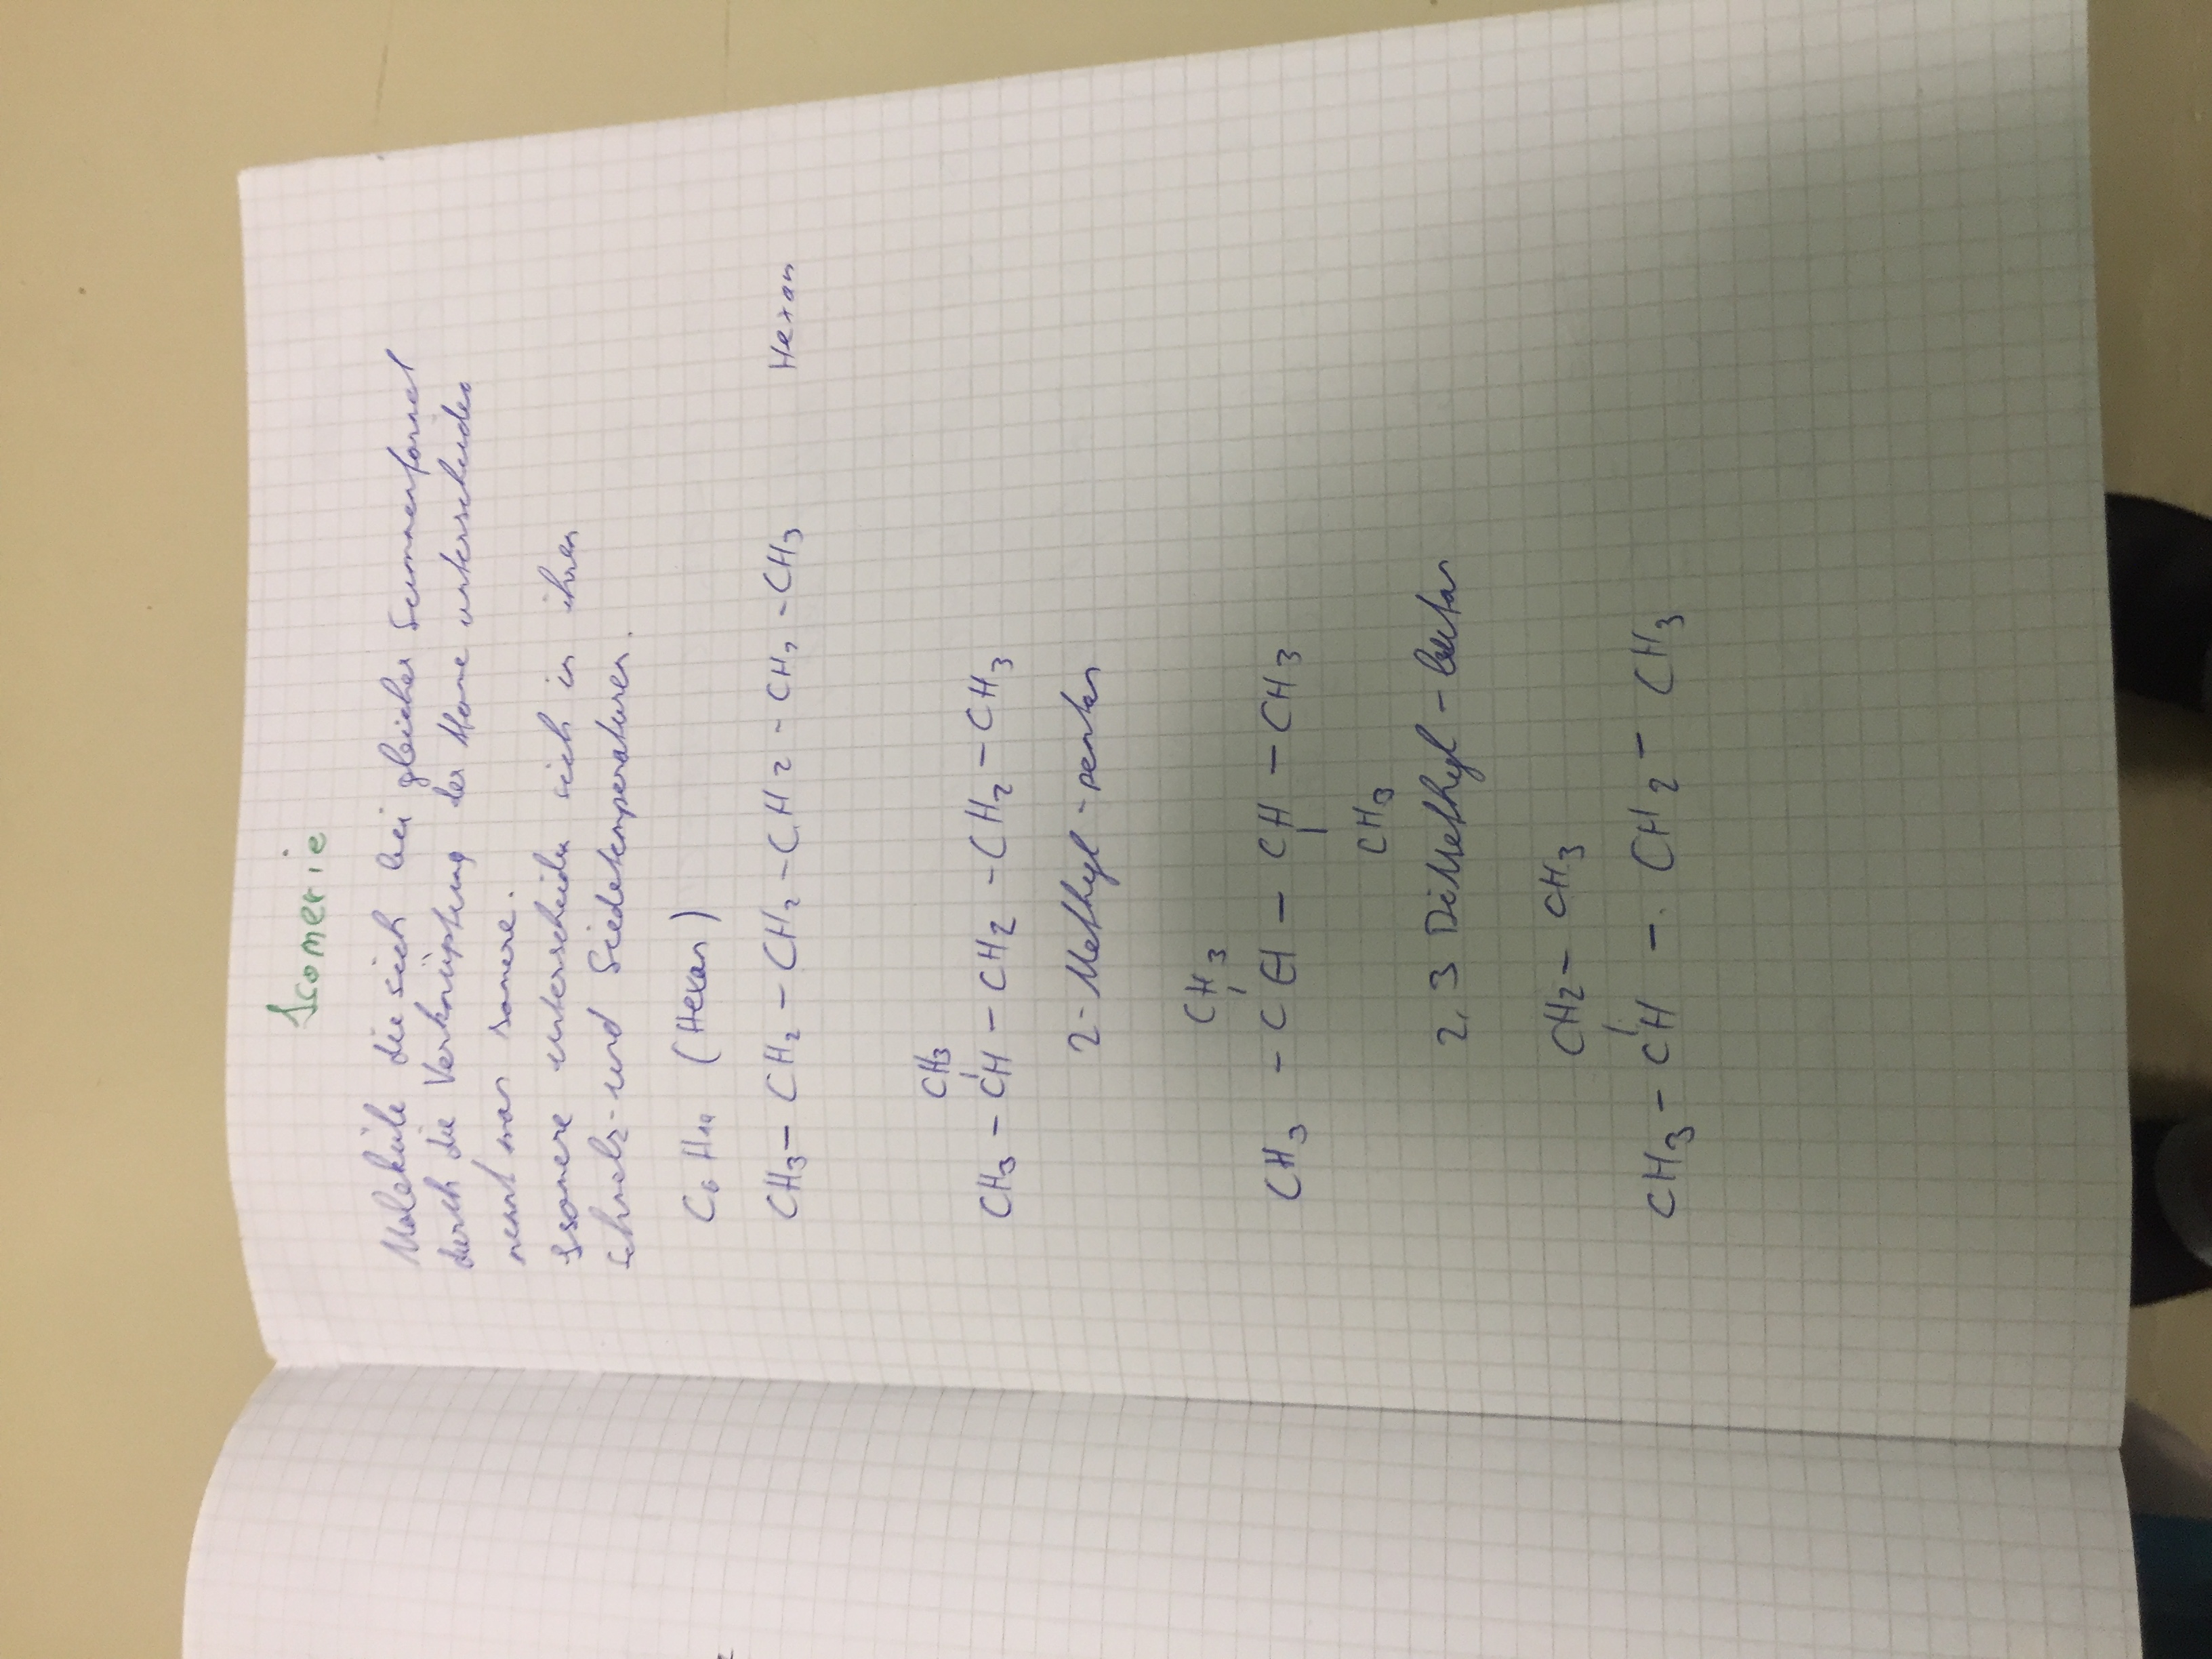 Isomerie
Moleküle die sich bei gleicher Summenformel
durch die Verknüpfung der Atome unterscheiden
nennt man Isomere.
Isomere unterscheiden sich in ihren
Schmelz- und Siedetemperaturen.
C₆H₁₄ (Hexan)
CH₃ – CH₂ – CH₂ – CH₂ – CH₂ – CH₃ Hexan
CH₃
CH₃ – CH – CH₂ – CH₂ – CH₃
2-Methyl-pentan
CH₃
CH₃ – CH – CH – CH₃
CH₃
2,3 DiMethyl-butan
CH₂ – CH₃
CH₃ – CH – CH₂ – CH₃